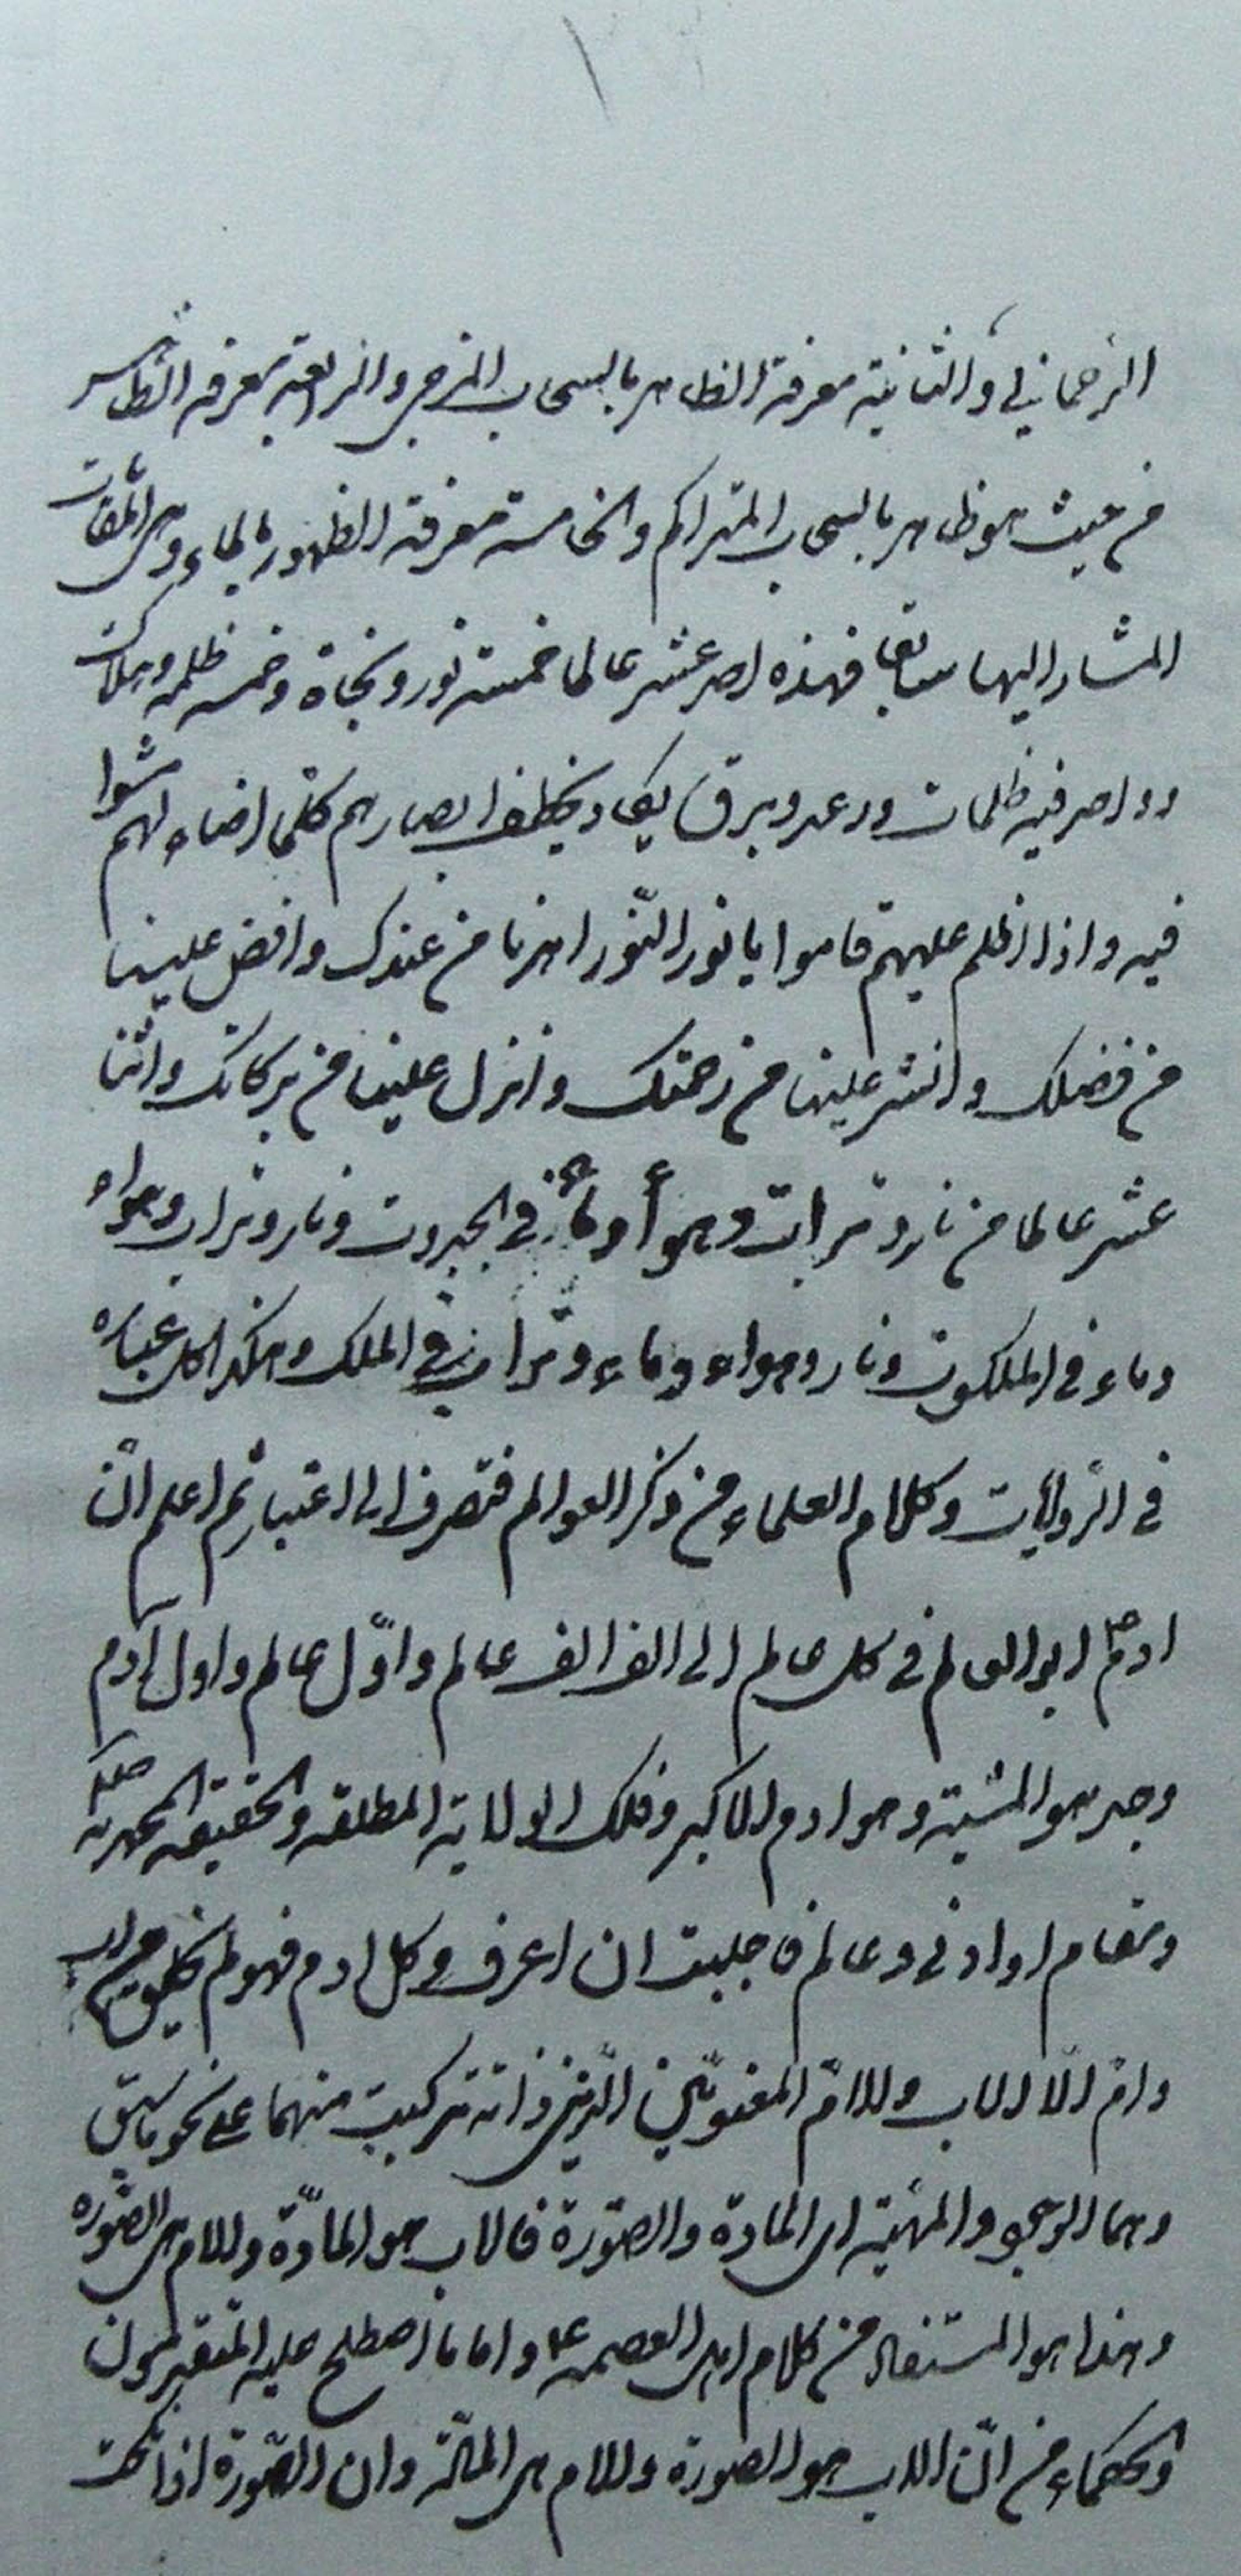 الرحماني والثانية معرفة الظاهر بالسحاب المزجى والرابعة معرفة الظاهر
من حيث هو ظاهر بالسحاب المتراكم والخامسة معرفة الظهور بالماء وهي المقامات
المشار اليها سابقا فهذه احد عشر عالما خمسة نور ونجاة وخمسه ظلمه وهلاكت
وواحد فيه ظلمات ورعد وبرق يكاد يخطف ابصارهم كلّما اضاء لهم مشوا
فيه واذا اظلم عليهم قاموا يا نور النّور اهدنا من عندك وافض علينا
من فضلك وانشر علينا من رحمتك وانزل علينا من بركاتك واثنا
عشر عالما من نار وتراب وهوآء ومآء في الجبروت ونار وتراب وهواء
وماء في الملكوت ونار وهواء وماء وتراب في الملك وهكذا كل عباره
في الرّوايات وكلام العلماء من ذكر العوالم فتصرف الى اعتبار ثم اعلم انّ
ادم ع ابو العالم في كل عالم الى الف الف عالم واوّل عالم واول آدم
وجد هو المشية وهو ادم الاكبر وفلك الولاية المطلقه والحقيقه المحمديه صلعم
ومقام او ادنى وعالم فاحببت ان اعرف وكل ادم فهو لم يخلق من اب
وام الّا الاب والامّ المعنويّين الّذين ذاته تركبت منهما على نحو ما سبق
وهما الوجود والمهيّة اى المادة والصّورة فالاب هو المادّة والام هى الصّوره
وهذا هو المستفاد من كلام اهل العصمه ع واما ما اصطلح عليه المتقدمون
والحكماء من انّ الاب هو الصورة والام هى المادّة وان الصّورة اذا نكحت